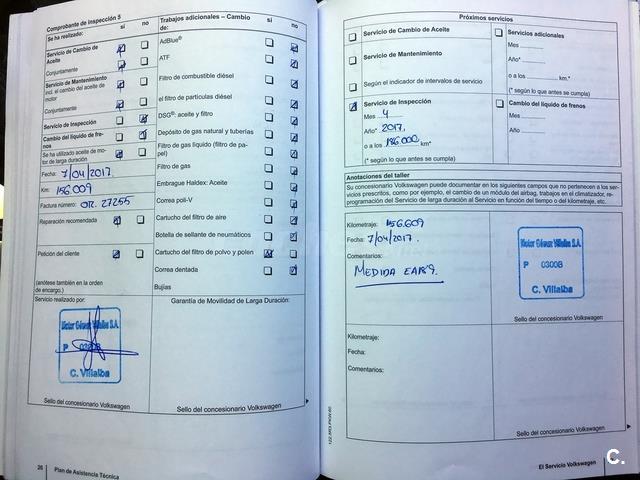 Comprobante de inspección 5
Se ha realizado:
sí no
Servicio de Cambio de
Aceite
Conjuntamente
Servicio de Mantenimiento
incl. el cambio del aceite de
motor
Conjuntamente
Servicio de Inspección
Cambio del líquido de fre-
nos
Se ha utilizado aceite de mo-
tor de larga duración
Fecha: 7/04/2017.
Km: 156.009
Factura número: OR. 27255
Reparación recomendada
Petición del cliente
(anótese también en la orden
de encargo.)
Servicio realizado por:
C. Villalba
Sello del concesionario Volkswagen
Trabajos adicionales – Cambio
de:
sí no
AdBlue®
ATF
Filtro de combustible diésel
el filtro de partículas diésel
DSG®: aceite y filtro
Depósito de gas natural y tuberías
Filtro de gas líquido (filtro de pa-
pel)
Filtro de gas
Embrague Haldex: Aceite
Correa poli-V
Cartucho del filtro de aire
Botella de sellante de neumáticos
Cartucho del filtro de polvo y polen
Correa dentada
Bujías
Garantía de Movilidad de Larga Duración:
Sello del concesionario Volkswagen
26 Plan de Asistencia Técnica
Próximos servicios
Servicio de Cambio de Aceite
Servicio de Mantenimiento
Según el indicador de intervalos de servicio
Servicio de Inspección
Mes 4
Año* 2017.
o a los 186.000 km*
(* según lo que antes se cumpla)
Servicios adicionales
Mes
Año*
o a los km.*
(* según lo que antes se cumpla)
Cambio del líquido de frenos
Mes
Año
Anotaciones del taller
Su concesionario Volkswagen puede documentar en los siguientes campos que no pertenecen a los ser-
vicios prescritos, como por ejemplo, el cambio de un módulo del airbag, trabajos en el climatizador, re-
programación del Servicio de larga duración al Servicio en función del tiempo o del kilometraje, etc.
Kilometraje: 156.609
Fecha: 7/04/2017.
Comentarios:
MEDIDA
P 0300B
C. Villalba
Sello del concesionario Volkswagen
Kilometraje:
Fecha:
Comentarios:
Sello del concesionario Volkswagen
El Servicio Volkswagen
C.